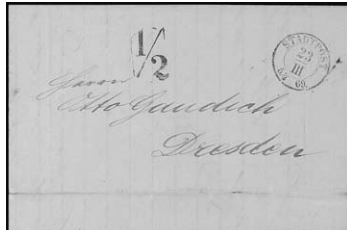 1/2
STADTPOST
23
III
5½ 69
Herrn
Otto Gaudich
Dresden